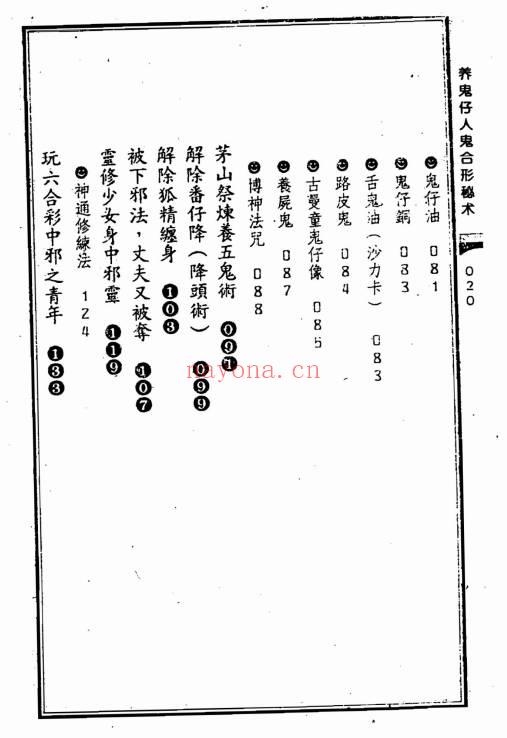 养鬼仔人鬼合形秘术 020
鬼仔油 081
鬼仔銅 083
舌鬼油（沙力卡） 083
路皮鬼 084
古曼童鬼仔像 085
養屍鬼 087
博神法咒 088
茅山祭煉養五鬼術 091
解除番仔降（降頭術） 099
解除狐精纏身 103
被下邪法，丈夫又被奪 107
靈修少女身中邪靈 119
神通修練法 124
玩六合彩中邪之青年 133
nayona.cn